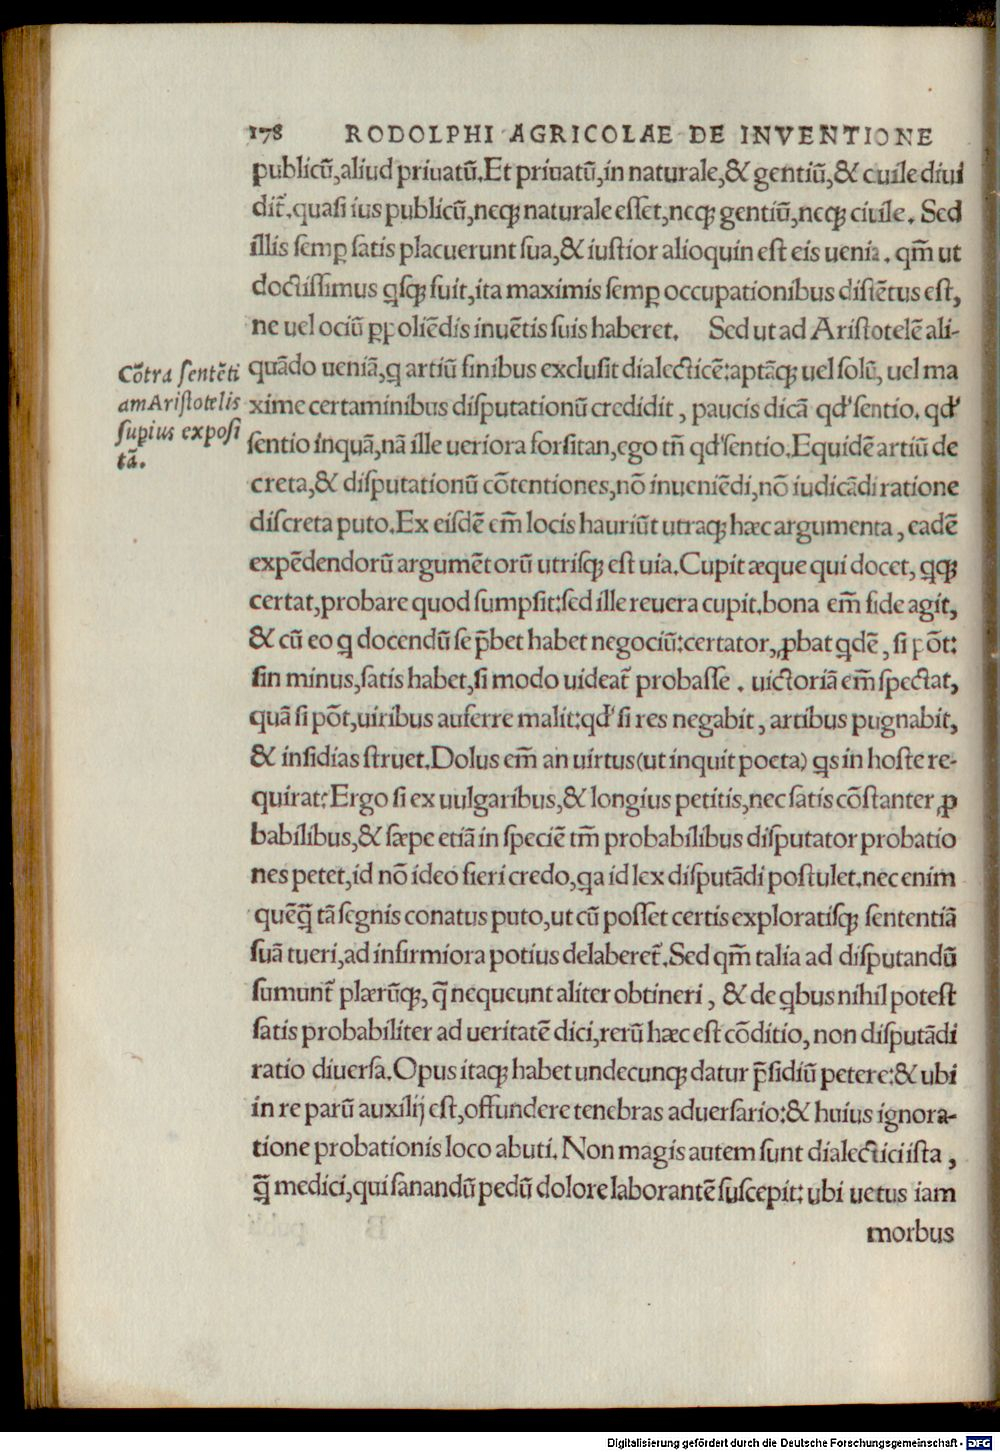 178 RODOLPHI AGRICOLAE DE INVENTIONE
publicū,aliud priuatū.Et priuatū,in naturale,& gentiū,& cuile diui
dit̃.quasi ius publicū,neqꝫ naturale esset,neqꝫ gentiū,neqꝫ ciuile. Sed
illis semꝑ satis placuerunt sua,& iustior alioquin est eis uenia. qm̃ ut
doctissimus qsqꝫ fuit,ita maximis semꝑ occupationibus distētus est,
ne uel ociū ꝑpoliēdis inuētis suis haberet. Sed ut ad Aristotelē ali-
Cōtra sentēti
amAristotelis
supius exposi
tā.
quādo ueniā,ꝗ artiū finibus exclusit dialecticē:aptāqꝫ uel solū, uel ma
xime certaminibus disputationū credidit, paucis dicā qd' sentio. qd'
sentio inquā,nā ille ueriora forsitan,ego tñ qd' sentio.Equidē artiū de
creta,& disputationū cōtentiones,nō inueniēdi,nō iudicādi ratione
discreta puto.Ex eisdē em̃ locis hauriūt utraqꝫ hæc argumenta, eadē
expēdendorū argumētorū utrisqꝫ est uia.Cupit æque qui docet, ꝗqꝫ
certat,probare quod sumpsit:sed ille reuera cupit.bona em̃ fide agit,
& cū eo ꝗ docendū se p̄bet habet negociū:certator,ꝓbat ꝗdē, si pōt:
sin minus,satis habet,si modo uideat̃ probasse. uictoriā em̃ spectat,
quā si pōt,uiribus auferre malit:qd' si res negabit, artibus pugnabit,
& insidias struet.Dolus em̃ an uirtus(ut inquit poeta) ꝗs in hoste re-
quirat?Ergo si ex uulgaribus,& longius petitis,nec satis cōstanter ꝓ
babilibus,& sæpe etiā in speciē tm̃ probabilibus disputator probatio
nes petet,id nō ideo fieri credo,ꝗa id lex disputādi postulet.nec enim
quēꝗ̄ tā segnis conatus puto,ut cū posset certis exploratisqꝫ sententiā
suā tueri,ad infirmiora potius delaberet̃.Sed qm̃ talia ad disputandū
sumunt̃ plærūqꝫ, q̄ nequeunt aliter obtineri, & de ꝗbus nihil potest
satis probabiliter ad ueritatē dici,rerū hæc est cōditio, non disputādi
ratio diuersa.Opus itaqꝫ habet undecunqꝫ datur p̄sidiū petere:& ubi
in re parū auxilij est,offundere tenebras aduersario:& huius ignora-
tione probationis loco abuti. Non magis autem sunt dialectici ista,
ꝗ̄ medici,qui sanandū pedū dolore laborantē suscepit: ubi uetus iam
morbus
Digitalisierung gefördert durch die Deutsche Forschungsgemeinschaft - DFG